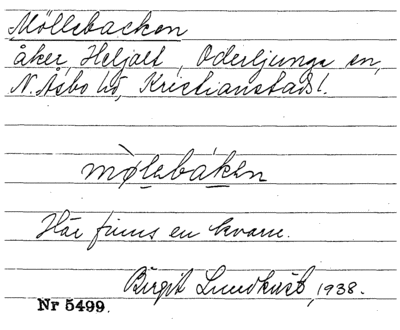 Möllebacken
åker, Heljalt, Oderljunga sn,
N. Åsbo hd, Kristianstads l.
mø̀lebákən
Här finns en kvarn.
Birgit Lundkvist, 1938.
Nr 5499.